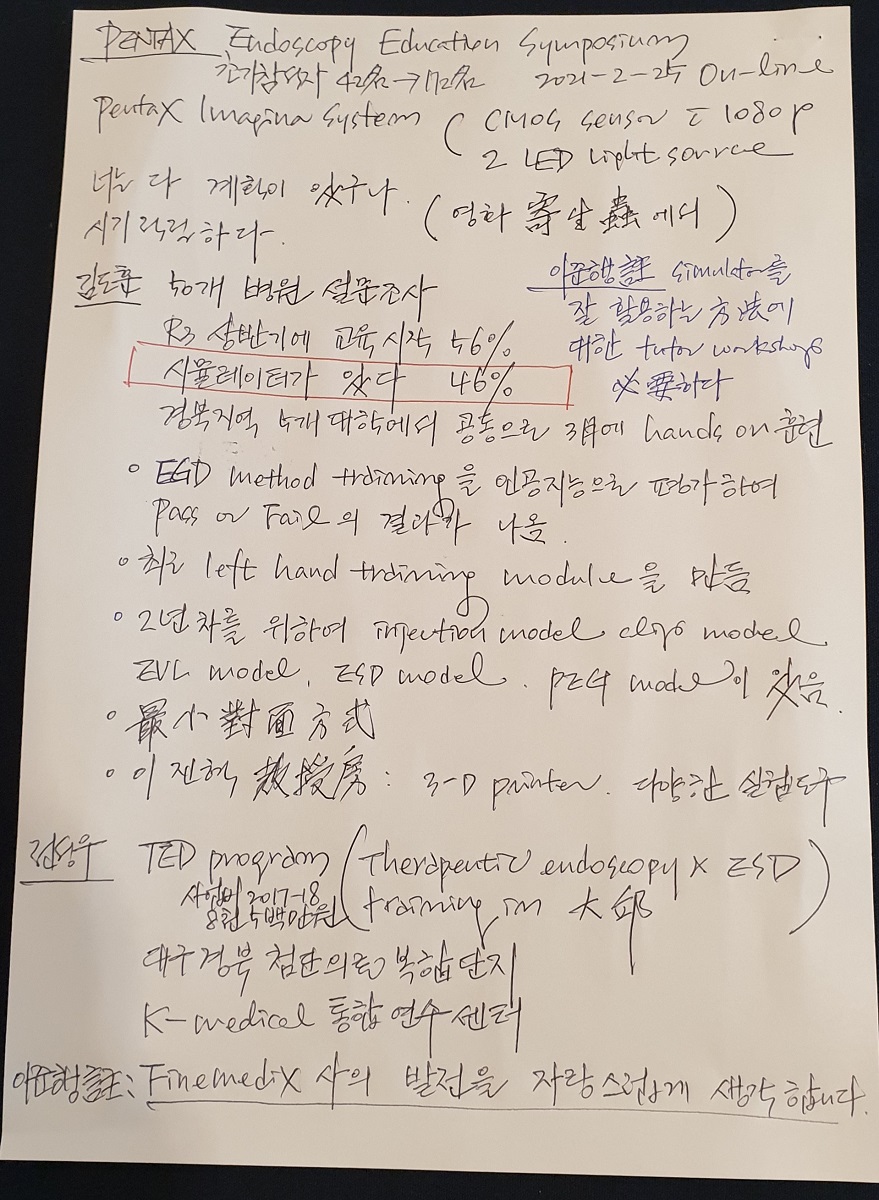 PENTAX Endoscopy Education Symposium
참가자 42名→172名 2021-2-25 On-line
Pentax Imagina System ( CMOS sensor c̄ 1080p
2 LED light source
너는 다 계획이 있구나.
(영화 寄生蟲에서)
시기적절하다.
김도훈 50개 병원 설문조사
R3 상반기에 교육 시작 56%
시뮬레이터가 있다 46%
이준행 註 simulator를
잘 활용하는 方法에
대한 tutor workshop
必要하다
경북지역 5개 대학에서 공동으로 3月에 hands on 훈련
◦ EGD method training을 인공지능으로 평가하여
Pass or Fail의 결과가 나옴.
◦ 최근 left hand training module을 만듬
◦ 2년차를 위하여 injection model clips model
EVL model, ESD model. PEG model이 있음.
◦ 最小對面方式
◦ 이진혁 敎授房: 3-D printer. 다양한 실험도구
TED program (Therapeutic endoscopy x ESD
training in 大邱)
사업비 2017-18
8천 5백만원
대구경북 첨단의료 복합단지
K-medical 통합연수센터
이준행註: Finemedix 사의 발전을 자랑스럽게 생각합니다.